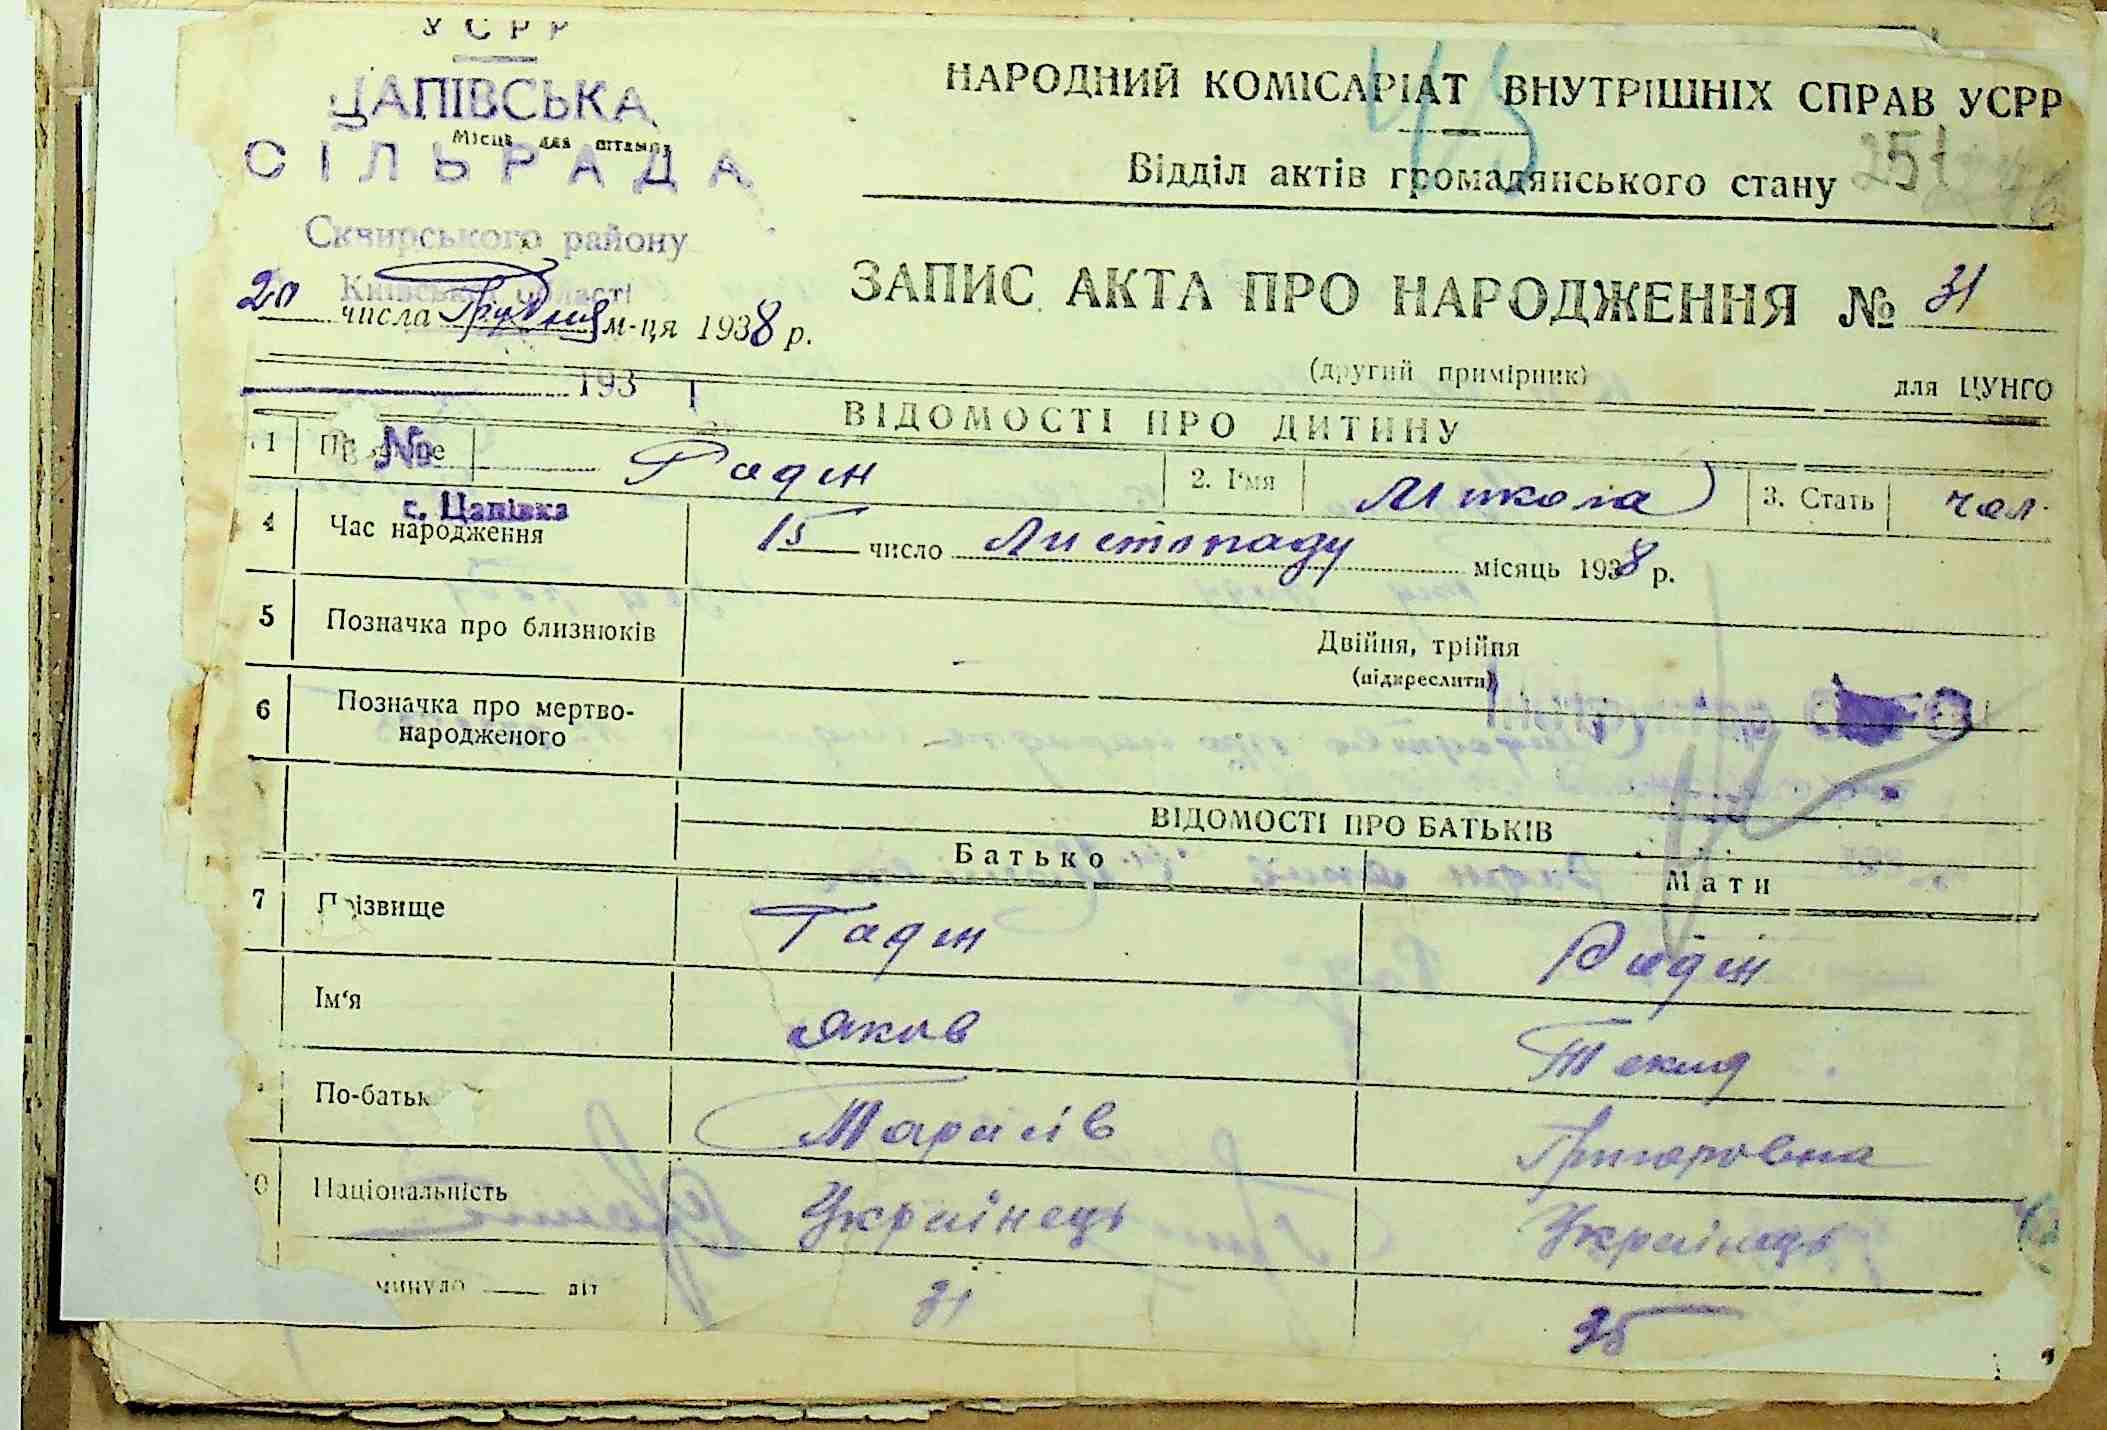 УСРР
ЦАПІВСЬКА
Місце для штампа
СІЛЬРАДА
Сквирського району
Київської області
20 числа Грудня м-ця 1938 р.
193
№
с. Цапівка
НАРОДНИЙ КОМІСАРІАТ ВНУТРІШНІХ СПРАВ УСРР
43
Відділ актів громадянського стану
251
ЗАПИС АКТА ПРО НАРОДЖЕННЯ № 31
(другий примірник) для ЦУНГО
ВІДОМОСТІ ПРО ДИТИНУ
1 Прізвище Радін 2. Ім'я Микола 3. Стать чол.
4 Час народження 15 число Листопаду місяць 1938 р.
5 Позначка про близнюків Двійня, трійня
(підкреслити)
6 Позначка про мертво-
народженого
ВІДОМОСТІ ПРО БАТЬКІВ
Батько Мати
7 Прізвище Радін Радін
Ім'я Яков Текля
По-батьк Тарасів Григоровна
0 Національність Українець Українець
минуло літ 31 35